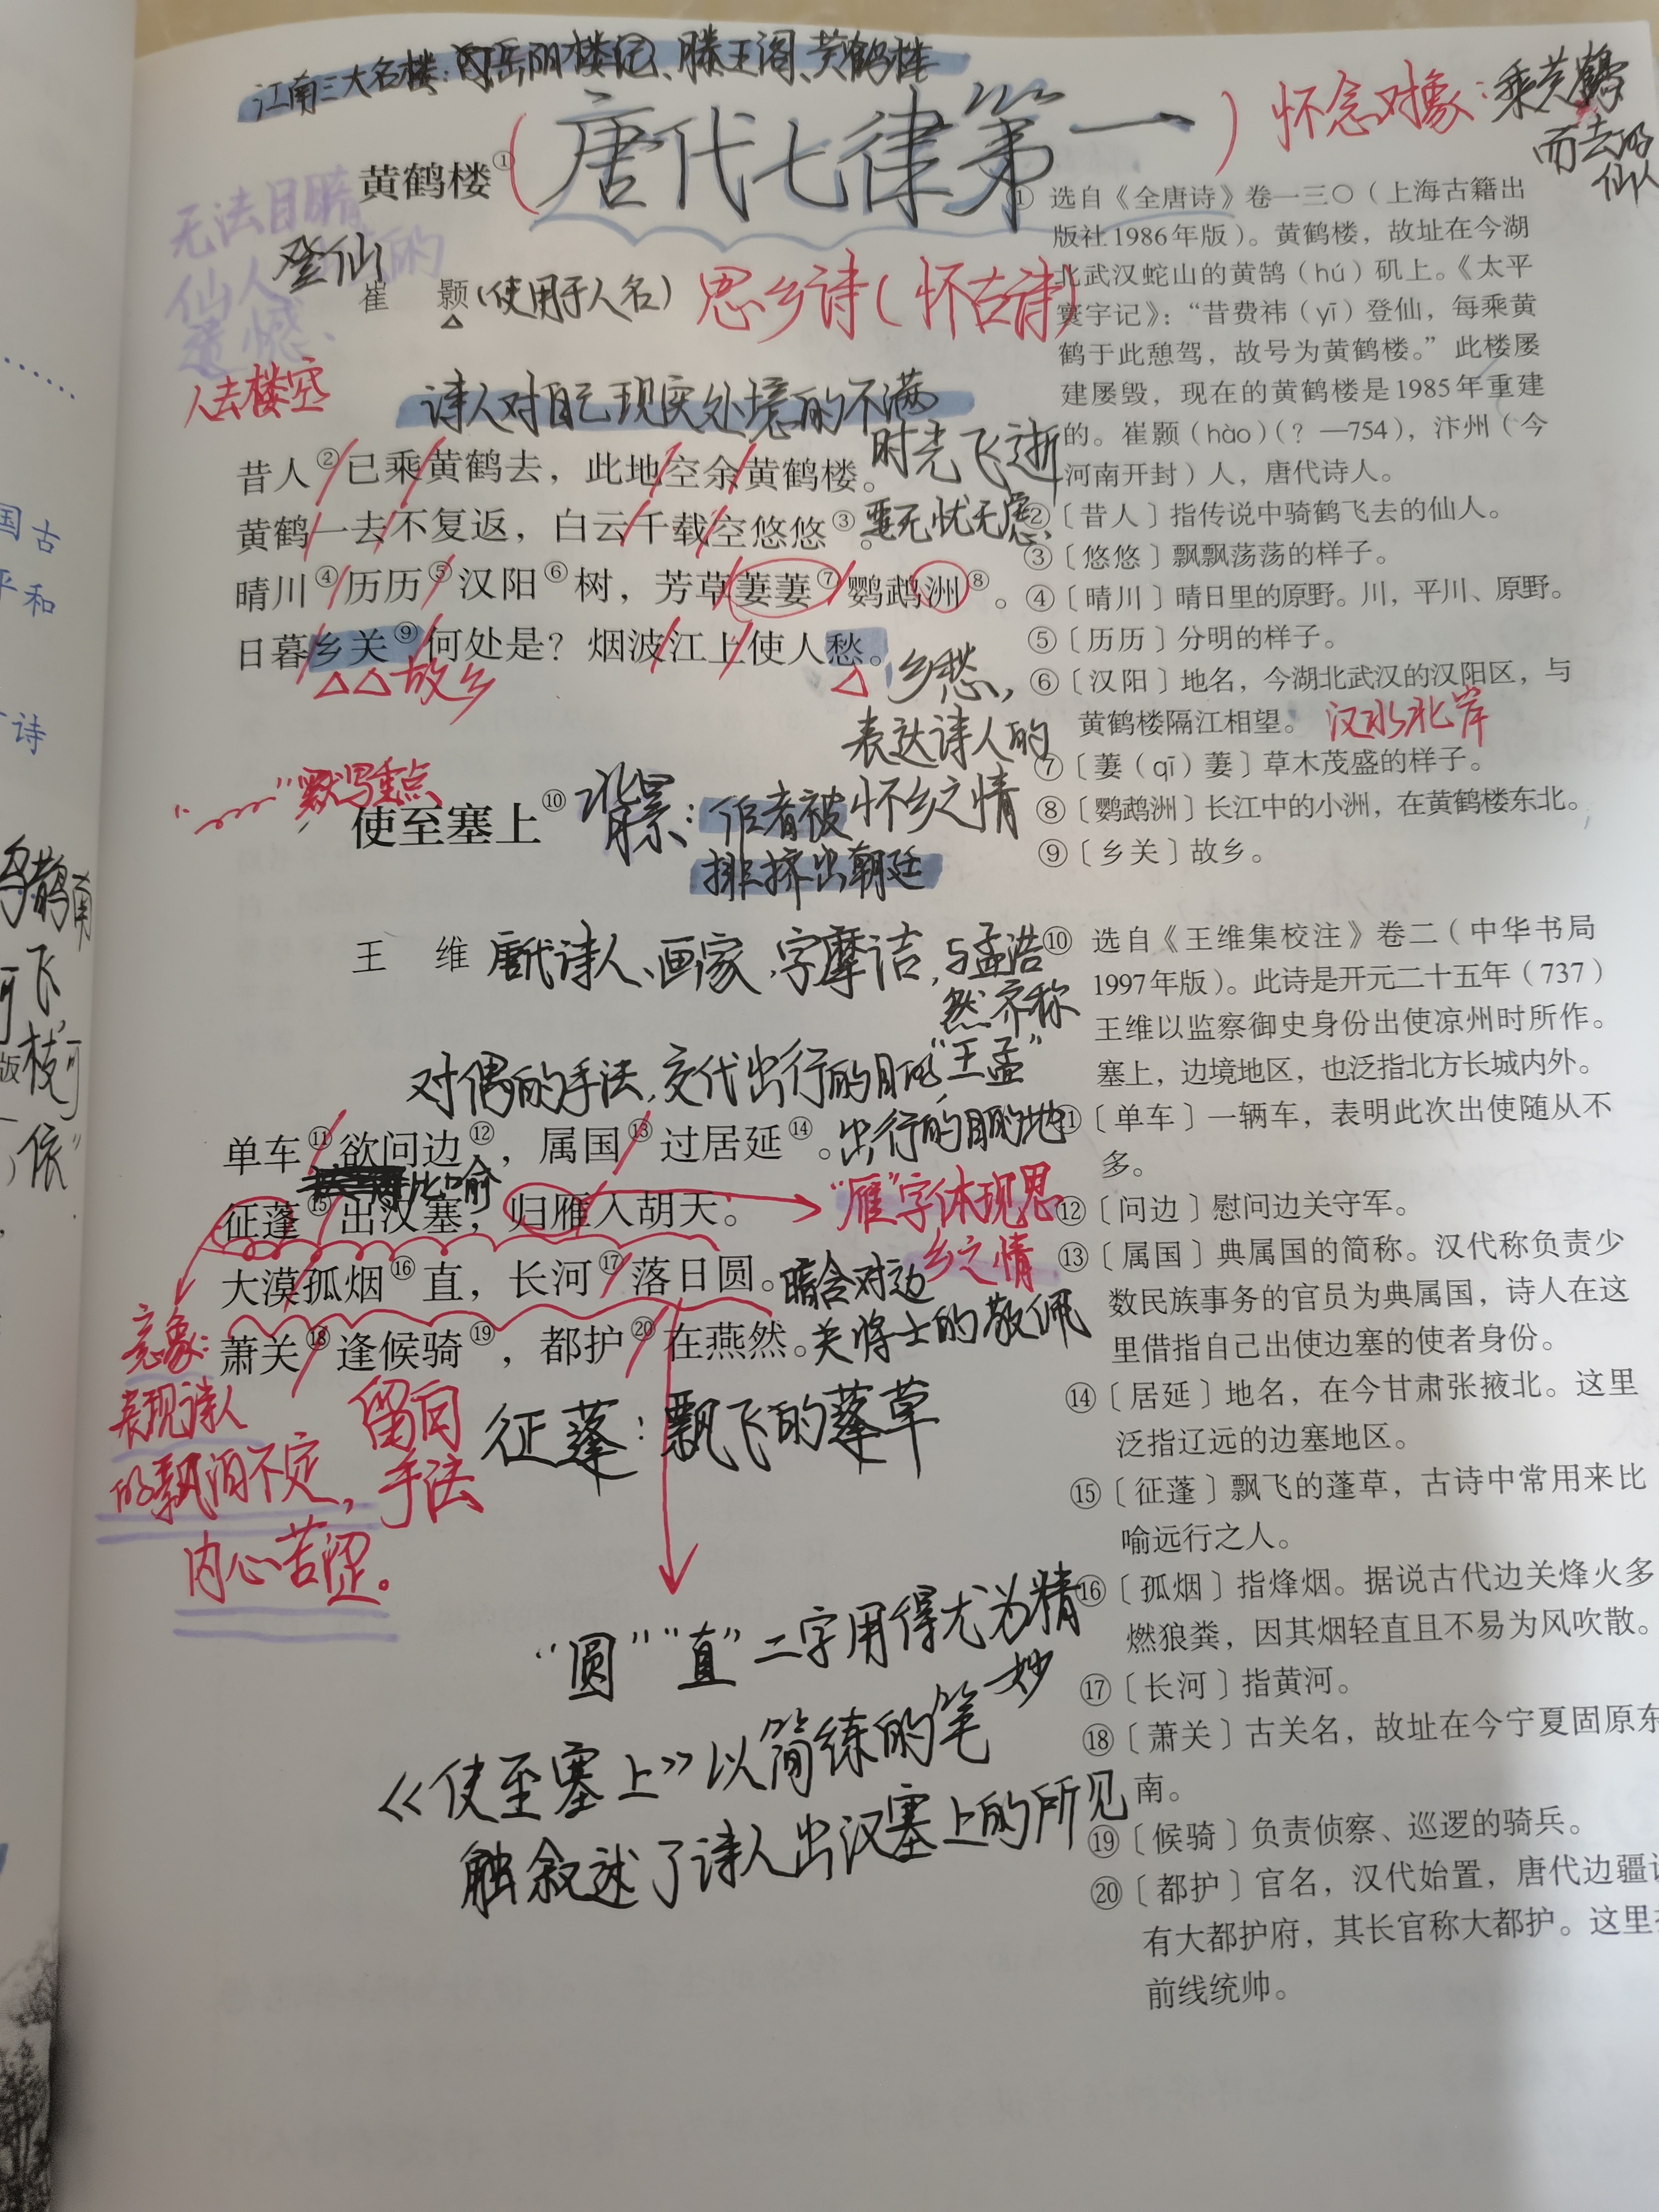 江南三大名楼：岳阳楼记、滕王阁、黄鹤楼
黄鹤楼①
（唐代七律第一）
怀念对象：乘黄鹤
而去的
仙人
无法目睹
仙人 的
遗憾、
登仙
崔 颢（使用于人名）
思乡诗（怀古诗）
人去楼空
诗人对自己现实处境的不满
昔人②/已乘/黄鹤去，此地/空余/黄鹤楼。
时光飞逝
黄鹤/一去/不复返，白云/千载/空悠悠③。
无忧无虑
晴川④/历历⑤/汉阳⑥树，芳草/萋萋⑦/鹦鹉洲⑧。
日暮/乡关⑨/何处是？烟波/江上/使人愁。
故乡
乡愁，
表达诗人的
怀乡之情
“﹏﹏”默写重点
使至塞上⑩
背景：作者被
排挤出朝廷
王 维
唐代诗人、画家，字摩诘，与孟浩
然齐称
“王孟”
对偶的手法，交代出行的目的，
出行的目的地
单车⑪/欲问边⑫，属国⑬/过居延⑭。
比喻
征蓬⑮/出汉塞，归雁/入胡天。
“雁”字体现思
乡之情
大漠/孤烟⑯直，长河⑰/落日圆。
暗含对边
关将士的敬佩
萧关⑱/逢候骑⑲，都护⑳/在燕然。
意象：
表现诗人
的飘泊不定，
内心苦涩。
留白
手法
征蓬：飘飞的蓬草
“圆”“直”二字用得尤为精
妙
《使至塞上》以简练的笔
触叙述了诗人出汉塞上的所见
① 选自《全唐诗》卷一三〇（上海古籍出
版社1986年版）。黄鹤楼，故址在今湖
北武汉蛇山的黄鹄（hú）矶上。《太平
寰宇记》：“昔费祎（yī）登仙，每乘黄
鹤于此憩驾，故号为黄鹤楼。”此楼屡
建屡毁，现在的黄鹤楼是1985年重建
的。崔颢（hào）（？—754），汴州（今
河南开封）人，唐代诗人。
②〔昔人〕指传说中骑鹤飞去的仙人。
③〔悠悠〕飘飘荡荡的样子。
④〔晴川〕晴日里的原野。川，平川、原野。
⑤〔历历〕分明的样子。
⑥〔汉阳〕地名，今湖北武汉的汉阳区，与
黄鹤楼隔江相望。
汉水北岸
⑦〔萋（qī）萋〕草木茂盛的样子。
⑧〔鹦鹉洲〕长江中的小洲，在黄鹤楼东北。
⑨〔乡关〕故乡。
⑩ 选自《王维集校注》卷二（中华书局
1997年版）。此诗是开元二十五年（737）
王维以监察御史身份出使凉州时所作。
塞上，边境地区，也泛指北方长城内外。
⑪〔单车〕一辆车，表明此次出使随从不
多。
⑫〔问边〕慰问边关守军。
⑬〔属国〕典属国的简称。汉代称负责少
数民族事务的官员为典属国，诗人在这
里借指自己出使边塞的使者身份。
⑭〔居延〕地名，在今甘肃张掖北。这里
泛指辽远的边塞地区。
⑮〔征蓬〕飘飞的蓬草，古诗中常用来比
喻远行之人。
⑯〔孤烟〕指烽烟。据说古代边关烽火多
燃狼粪，因其烟轻直且不易为风吹散。
⑰〔长河〕指黄河。
⑱〔萧关〕古关名，故址在今宁夏固原东
南。
⑲〔候骑〕负责侦察、巡逻的骑兵。
⑳〔都护〕官名，汉代始置，唐代边疆
有大都护府，其长官称大都护。这里
前线统帅。
国古
平和
诗
鹊南
飞，
枝可
依”